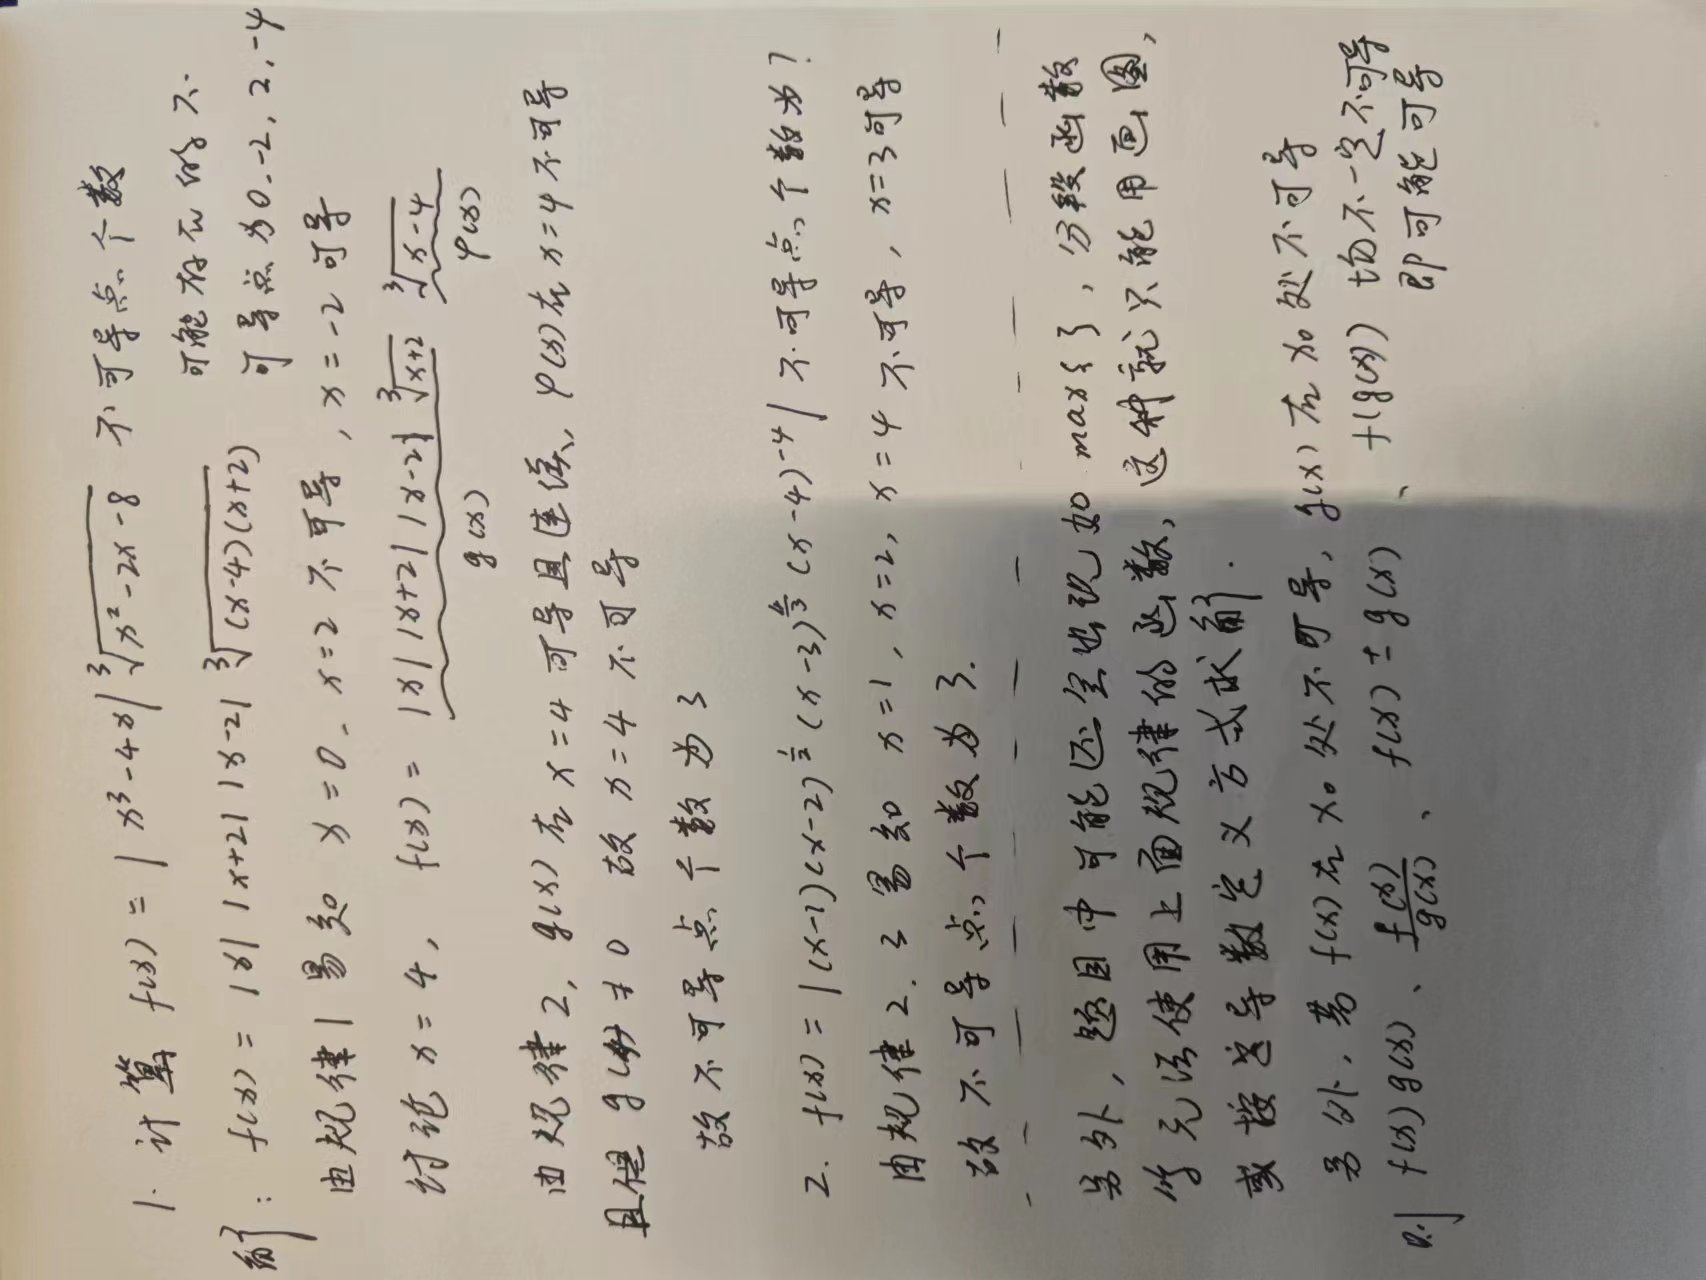 1. 计算 f(x) = |x³-4x| ∛(x²-2x-8) 不可导点个数
可能存在的不
解: f(x) = |x| |x+2| |x-2| ∛((x-4)(x+2))
可导点为0.-2, 2, -4
由规律1易知 x=0. x=2 不可导, x=-2 可导
讨论 x=4, f(x) = |x| |x+2| |x-2| ∛(x+2) ∛(x-4)
g(x) φ(x)
由规律2, g(x)在x=4可导且连续, φ(x)在x=4不可导
且 g(4)≠0 故 x=4 不可导
故不可导点个数为3
2. f(x) = |(x-1)(x-2)^½ (x-3)^{4/3} (x-4)^{-4}| 不可导点个数为?
由规律2.3易知 x=1, x=2, x=4 不可导, x=3可导
故不可导点个数为3.
另外, 题目中可能还会出现如 max{ }, 分段函数
等无法使用上面规律的函数, 这种就只能用画图,
或按定导数定义方式求解.
另外, 若 f(x)在x₀处不可导, g(x)在x₀处不可导
则 f(x)g(x)、f(x)/g(x)、f(x)±g(x)、f(g(x)) 均不一定不可导
即可能可导